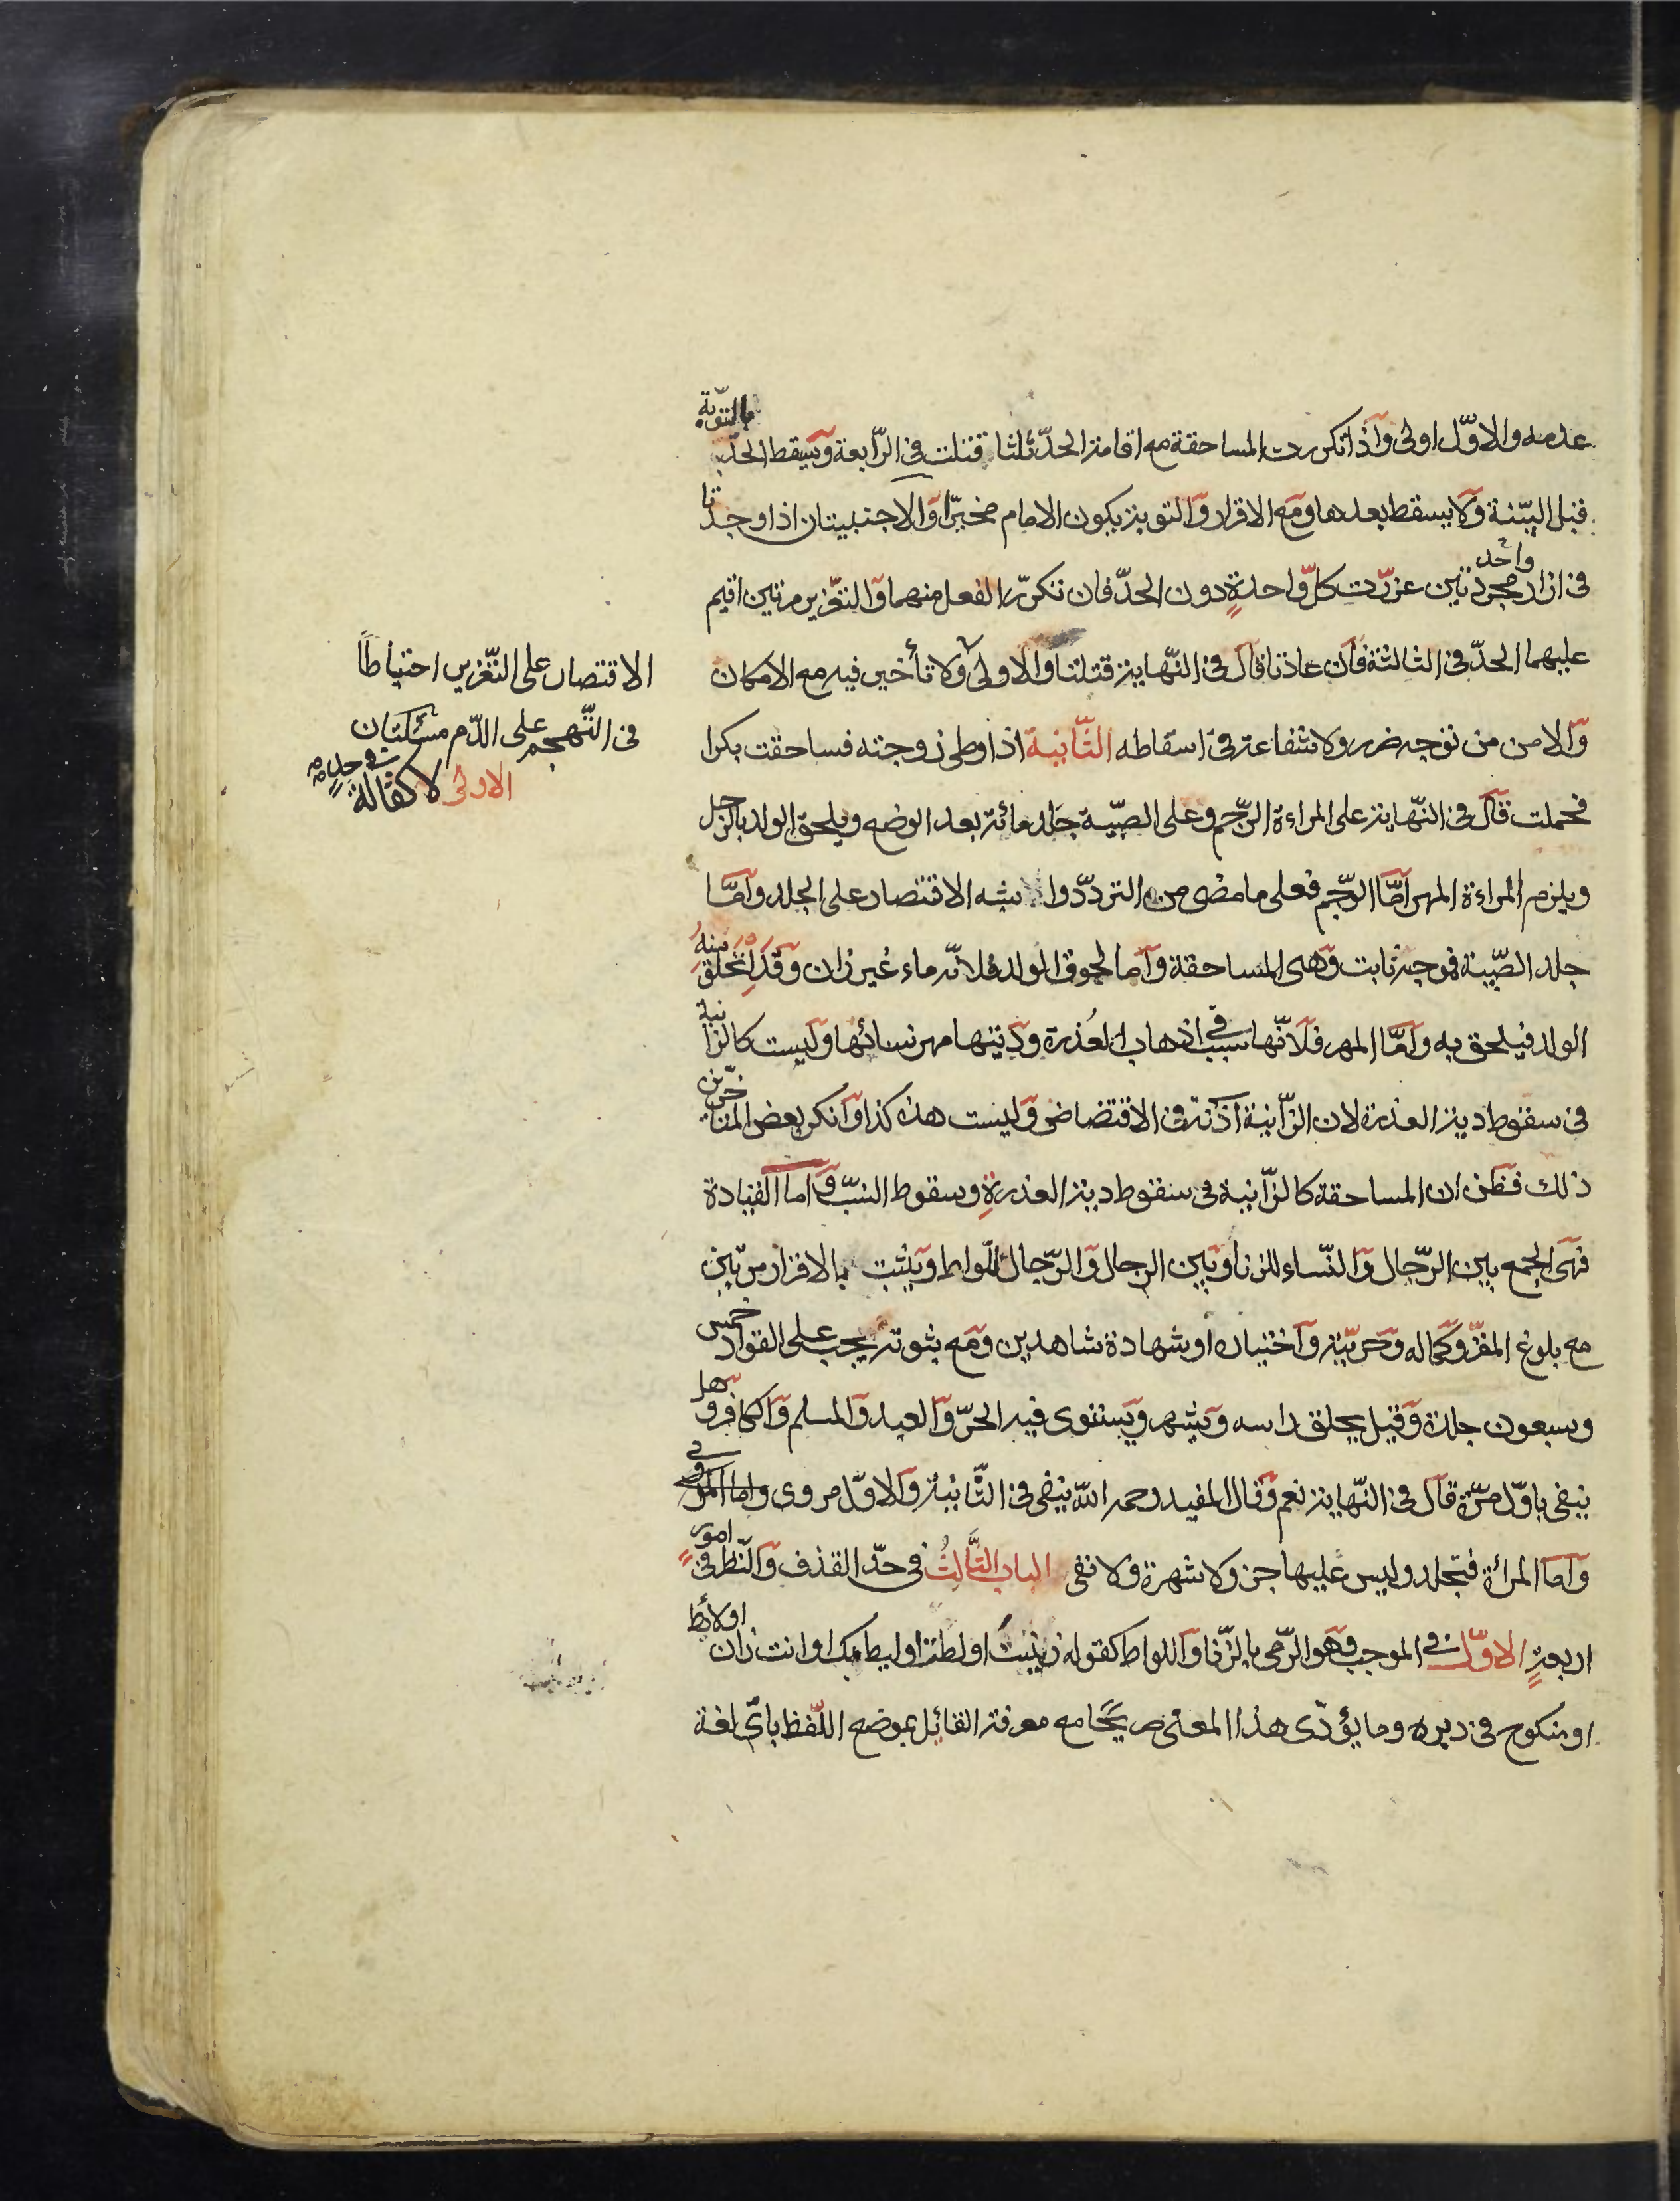 عدمه والاوّل اولى وَاذا تكررت المساحقة مع اقامة الحدّ ثلثا قتلت فى الرّابعة وَيسقط الحدّ بالتوبة
قبل البيّنة وَلا يسقط بعدها وَمع الاقرار وَالتوبة يكون الامام مخيّرا وَالاجنبيتان اذا وجدتا
فى ازار واحد مجردتين عزّرت كلّ واحدةٍ دون الحدّ فان تكرّر الفعل منهما وَالتّعزير مرتين اقيم
عليهما الحدّ فى الثالثة فَان عادتا قال فى النّهاية قتلتا وَالاولى الاقتصار على التّعزير احتياطاً
فى التّهجم على الدّم مسئلتان
الاولى لا كفالة فى حدٍ
ولا تأخير فيه مع الامكان
وَالامن من توجه ضرر ولا شفاعة فى اسقاطه الثّانية اذا وطى زوجته فساحقت بكرا
فحملت قال فى النّهاية على المراءة الرّجم وعلى الصبّية جلد مائة بعد الوضع ويلحق الولد بالرّجل
ويلزم المراءة المهر امّا الرّجم فعلى ما مضى من التردّد والاشبه الاقتصار على الجلد وَامّا
جلد الصّبية فموجبه ثابت وَهى المساحقة وَاما لحوق الولد فلانّه ماء غير زان وَقد انخلق منهُ
الولد فيلحق به وَامّا المهر فلانّها سبب فى اذهاب العُذرة وَديتها مهر نسائها وَليست كالزّانية
فى سقوط دية العذرة لان الزّانية اذنت فى الاقتضاض وَليست هذه كذا وَانكر بعض المتاخّرين
ذلك فظن ان المساحقة كالزّانية فى سقوط دية العذرةِ وسقوط النسب وَاما القيادة
فهى الجمع بين الرّجال وَالنّساء للزنا وَبين الرجال وَالرّجال للّواط وَيثبت بالاقرار مرّتين
مع بلوغ المقرّ وَكماله وَحرّيّته وَاختياره او شهادة شاهدين وَمع ثبوته يجب على القواد خمس
وسبعون جلدة وَقيل يحلق راسه وَيشهر وَيستوى فيه الحرّ وَالعبد وَالمسلم وَالكافر وهل
ينفى باوّل مرّة قال فى النّهاية نعم وَقال المفيد رحمه الله ينفى فى الثّانية وَالاوّل مروى
وَاما المرأة فتجلد وليس عليها جز ولا شهرة ولا نفى الباب الثّالثُ فى حدّ القذف وَالنّظر فى امور
اربعةٍ الاوّل فى الموجب وَهو الرّمى بالزّنا وَاللواط كقوله زنيت او لطت او ليط بك او انت زان او لائط
او منكوح فى دبره وما يؤدّى هذا المعنى صريحًا مع معرفة القائل بموضع اللّفظ باىّ لغة